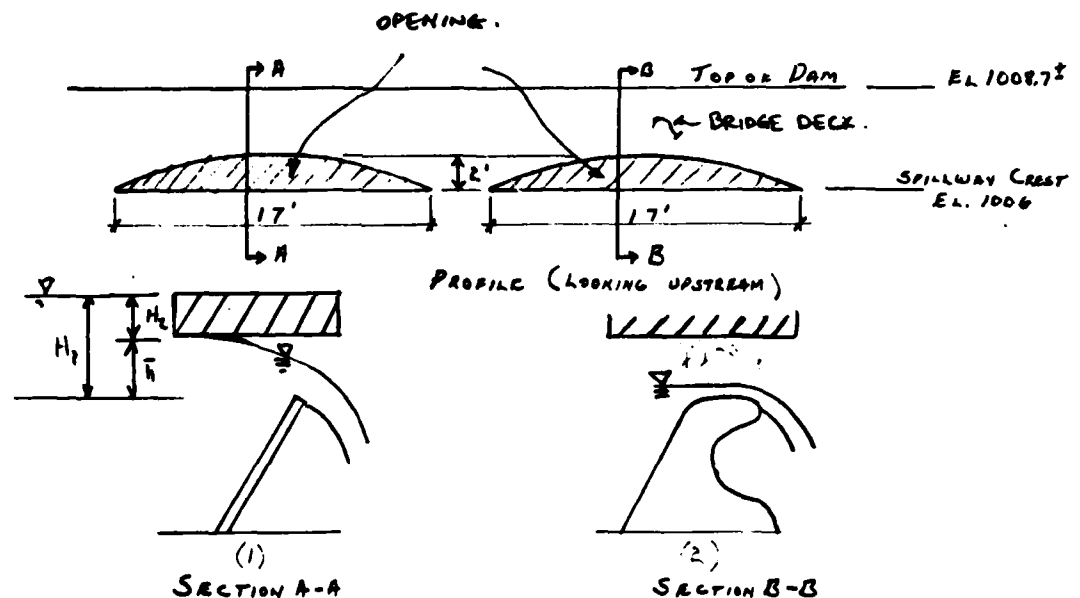 OPENING.
A
B
TOP OF DAM
EL 1008.7±
BRIDGE DECK.
2'
SPILLWAY CREST
EL. 1006
17'
17'
A
B
PROFILE (LOOKING UPSTREAM)
H2
H1
h̄
(1)
(2)
SECTION A-A
SECTION B-B